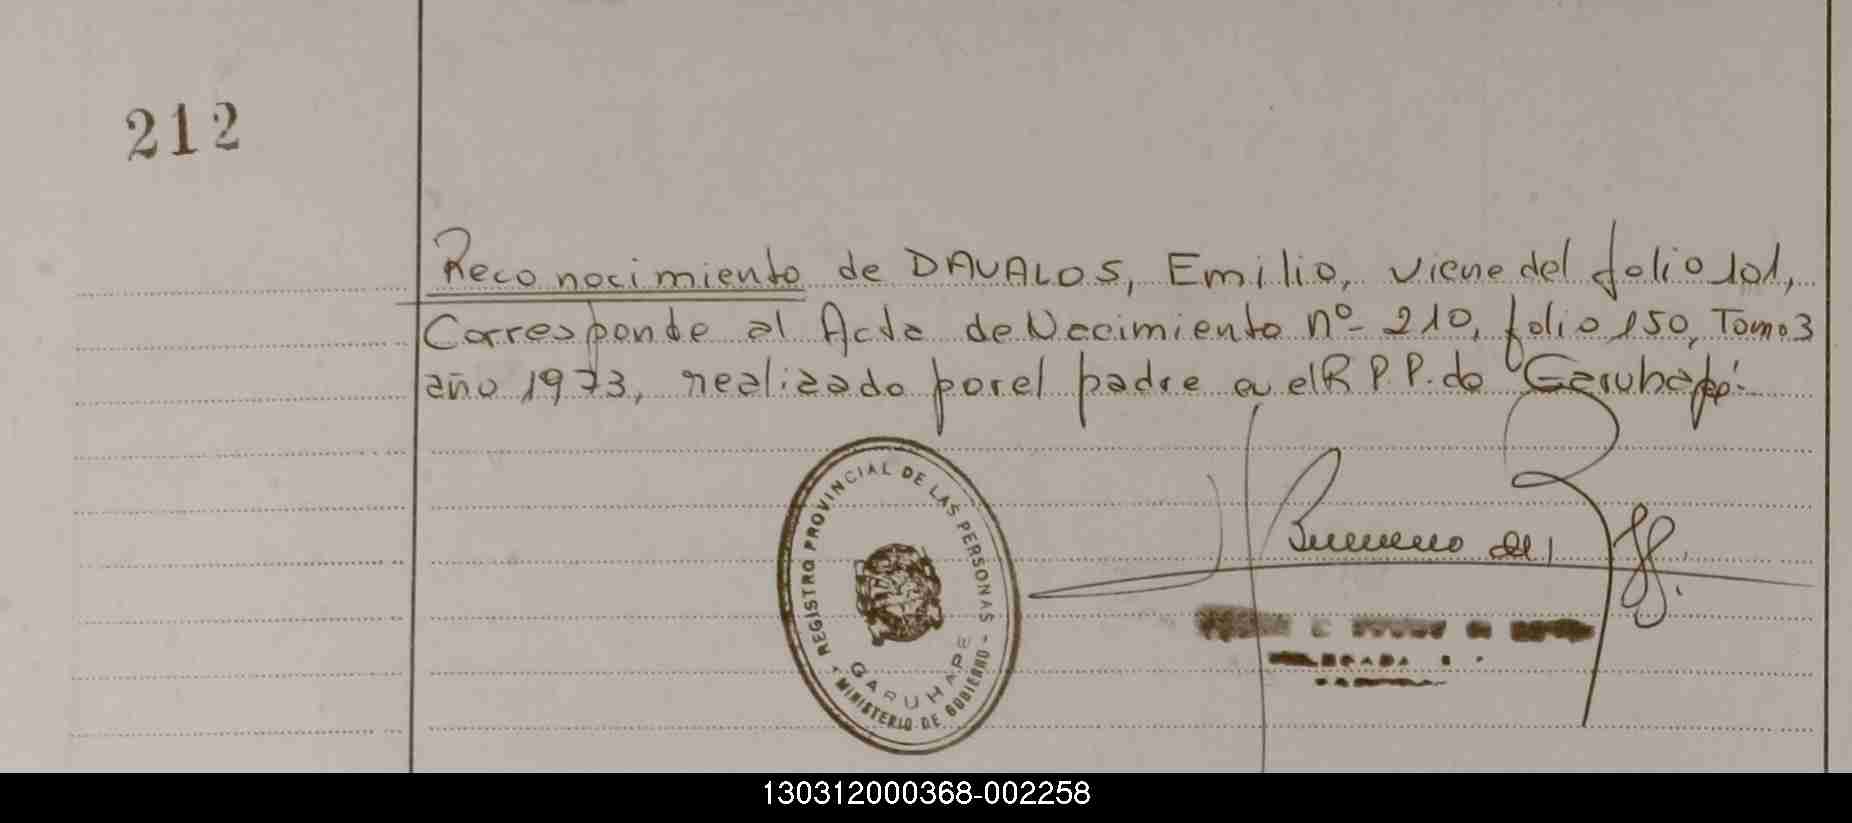 212
Reconocimiento de DAVALOS, Emilio, viene del folio 101,
Corresponde al Acta de Nacimiento nº 210, folio 150, Tomo 3
año 1973, realizado por el padre en el R.P.P. de Garuhapé.
REGISTRO PROVINCIAL DE LAS PERSONAS
GARUHAPE
MINISTERIO DE GOBIERNO
130312000368-002258